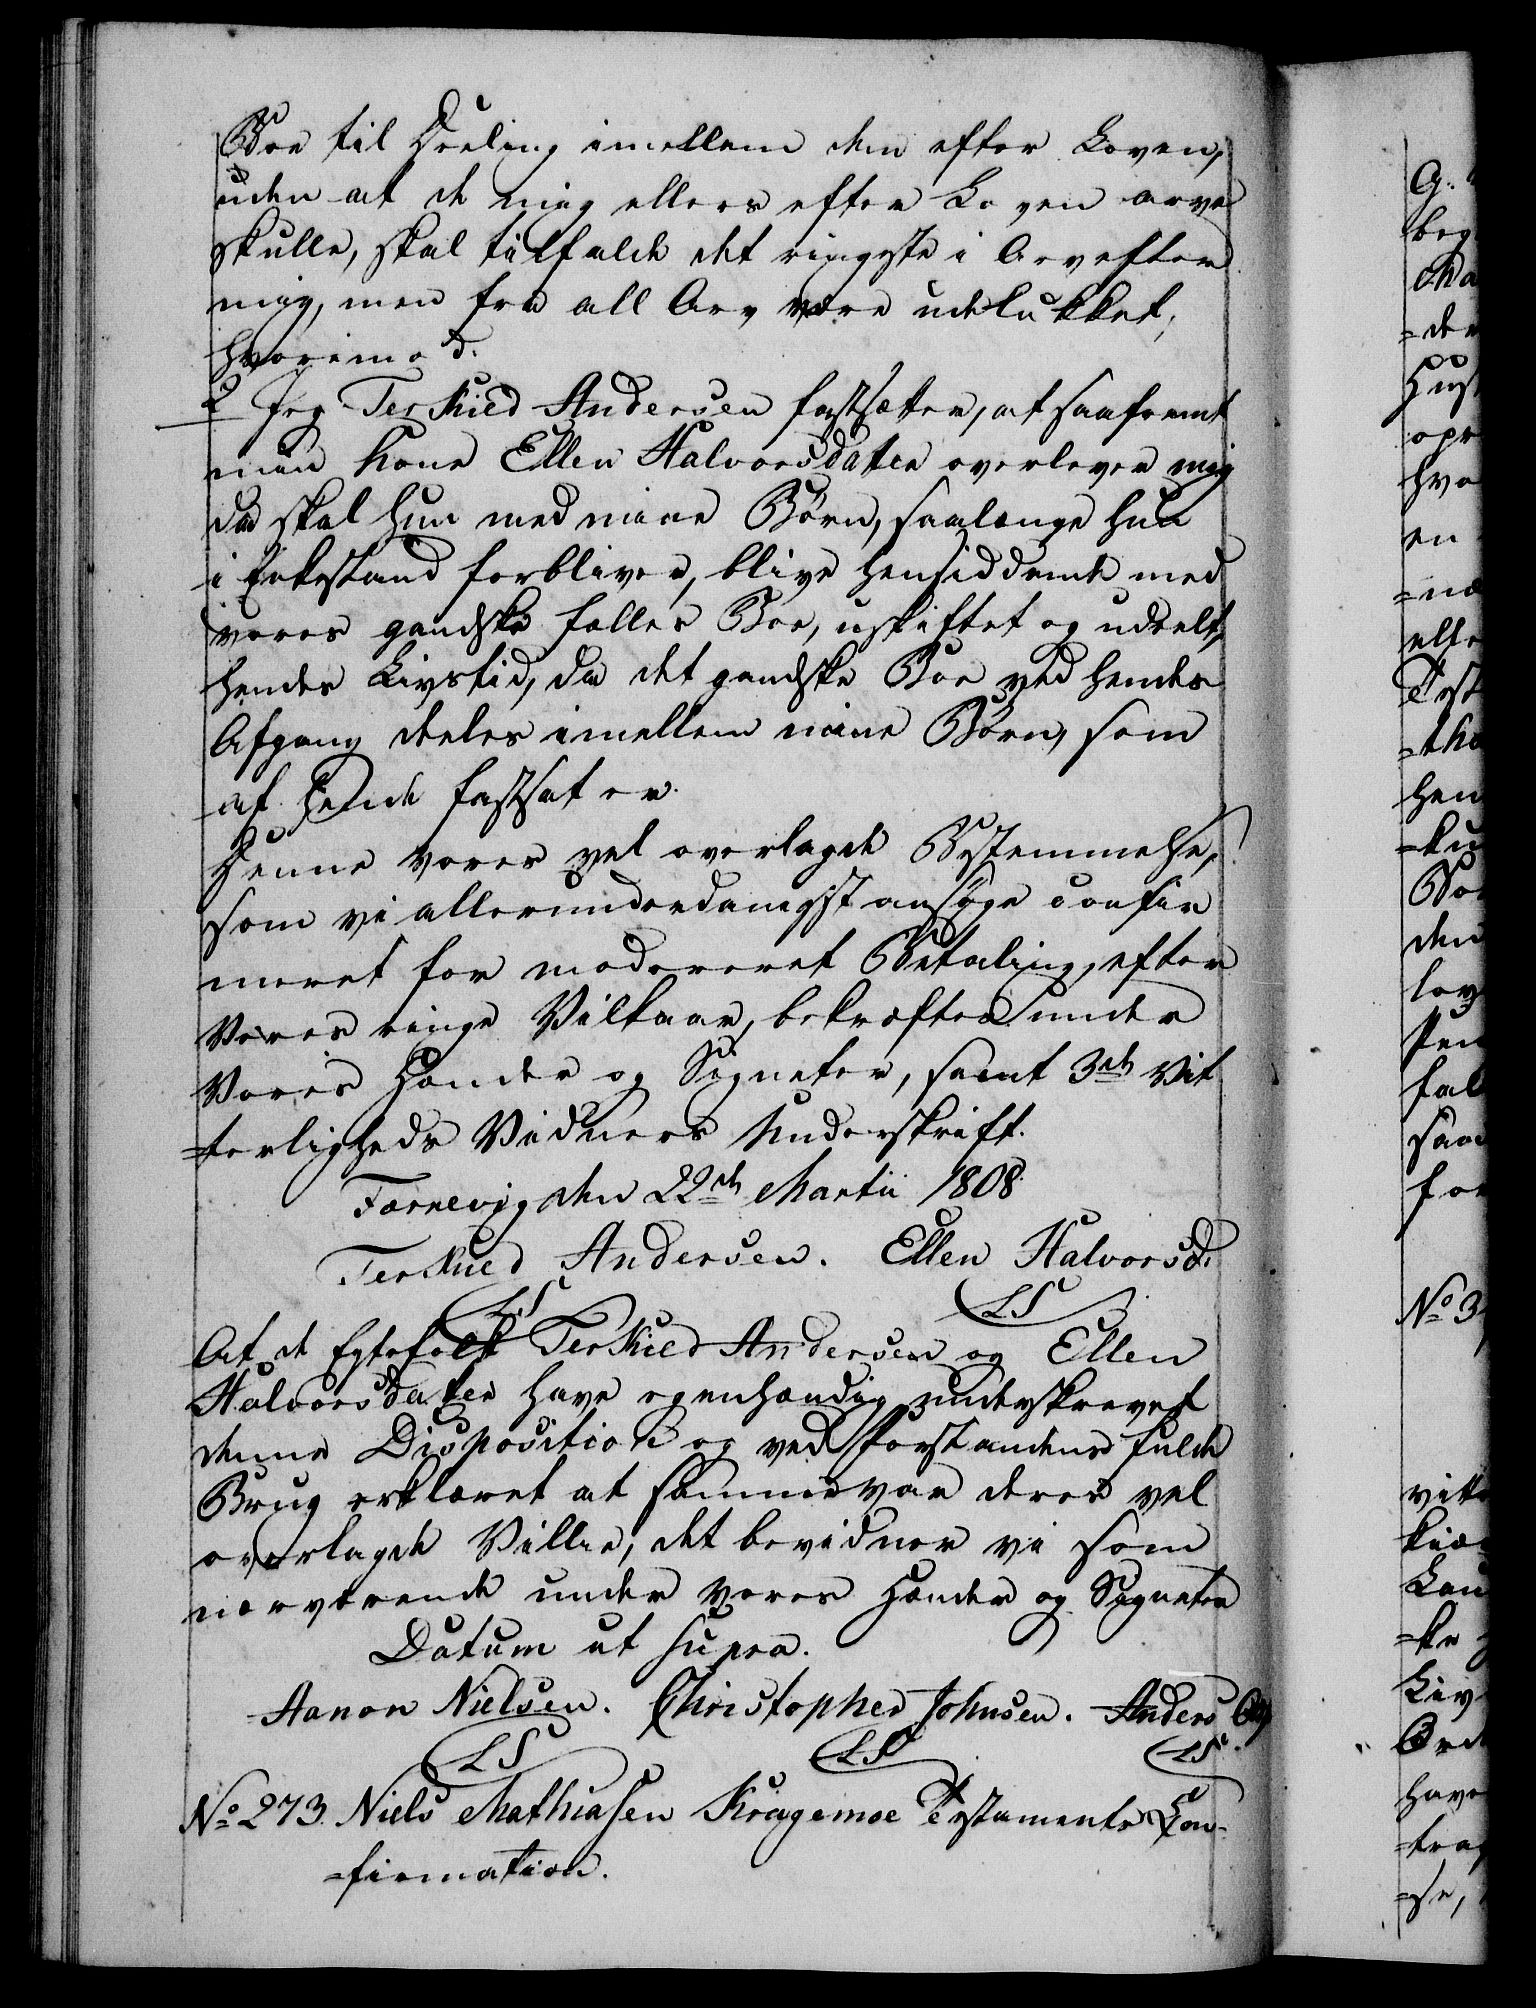 Boe til Deeling imellem dem efter Loven,
uden at de mig ellers efter Loven arve
skulle, skal tilfalde det ringeste i Arv efter
mig, men fra all Arv være udelukket,
hvorimod.
2 Jeg Terkield Andersen fastsætter, at saafremt
min Kone Ellen Halvorsdatter overlever mig
da skal hun med mine Børn, saalænge hun
i Enkestand forbliver, blive hensiddende med
vores gandske fælles Boe, uskiftet og udeelt,
hendes Livstid, da det gandske Boe ved hendes
Afgang deeles imellem mine Børn, som
af hende fastsat er.
Denne vores vel overlagde Bestemmelse,
som vi allerunderdanigst ansøge confir
meret for modereret Betaling, efter
Vores ringe Vilkaar, bekræftes under
Vores Hænder og Signeter, samt 3de Vit
=terligheds Vidners Underskrift.
Færrevig den 22de Martii 1808.
Terkield Andersen. Ellen Halvorsd.
LS LS
At de Egtefolk Terkield Andersen og Ellen
Halvorsdatter have egenhændig underskrevet
denne Disposition og ved Forstandens fulde
Brug erklæret at samme var deres vel
overlagde Villie, det bevidner vi som
nærværende under vores Hænder og Signeter
Datum ut supra.
Aanon Nielsen. Christopher Johnsen. Anders
LS LS LS.
No 273. Niels Mathiasen Kragemoe Testaments Con-
=firmation.